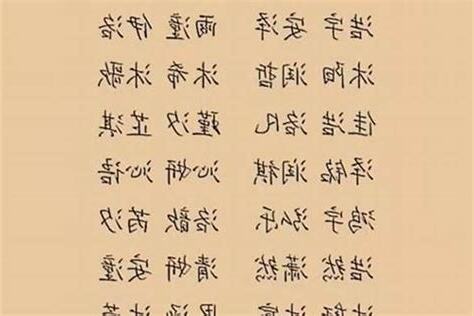 浩宇 安泽 雨潼 伊洛
沐阳 润哲 希沐 沐歌
佳浩 洛凡 瑾汐 芷淇
泽铭 润祺 沁妍 沁语
鸿宇 泓乐 洛歆 芮汐
浩然 潇然 清妍 安潼